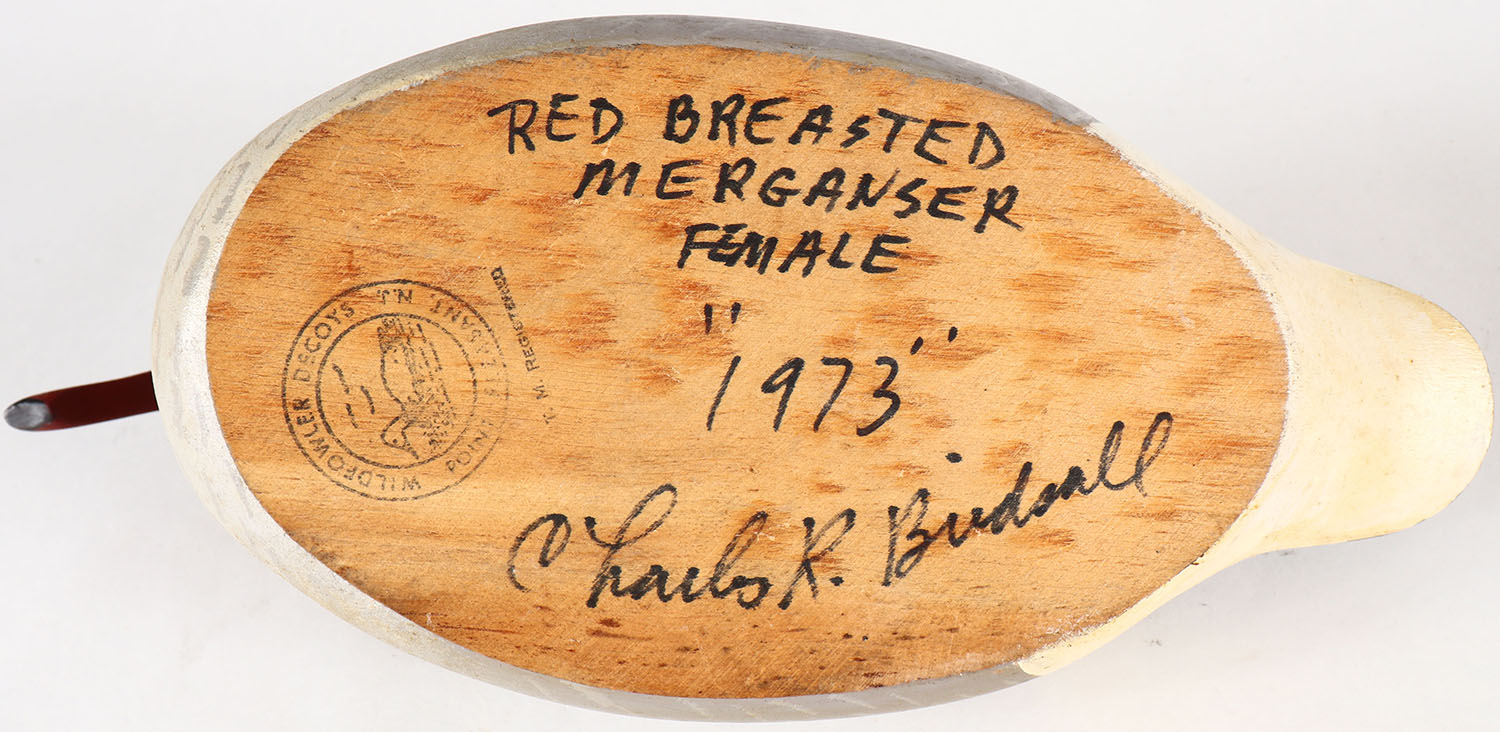 RED BREASTED
MERGANSER
FEMALE
"1973"
Charles R. Birdsall
WILDFOWLER DECOYS
POINT PLEASANT, N.J.
T. M. REGISTERED